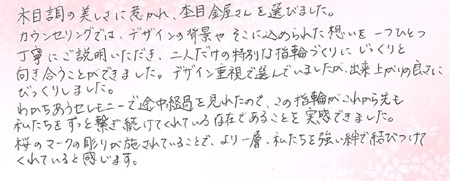 木目調の美しさに惹かれ、杢目金屋さんを選びました。
カウンセリングでは、デザインの背景やそこに込められた想いを一つひとつ
丁寧にご説明いただき、二人だけの特別な指輪づくりにじっくりと
向き合うことができました。デザイン重視で選んでいましたが、出来上がりの良さに
びっくりしました。
わかちあうセレモニーで途中経過を見れたので、この指輪がこれから先も
私たちをずっと繋ぎ続けてくれている存在であることを実感できました。
桜のマークの彫りが施されていることで、より一層、私たちを強い絆で結びつけて
くれていると感じます。